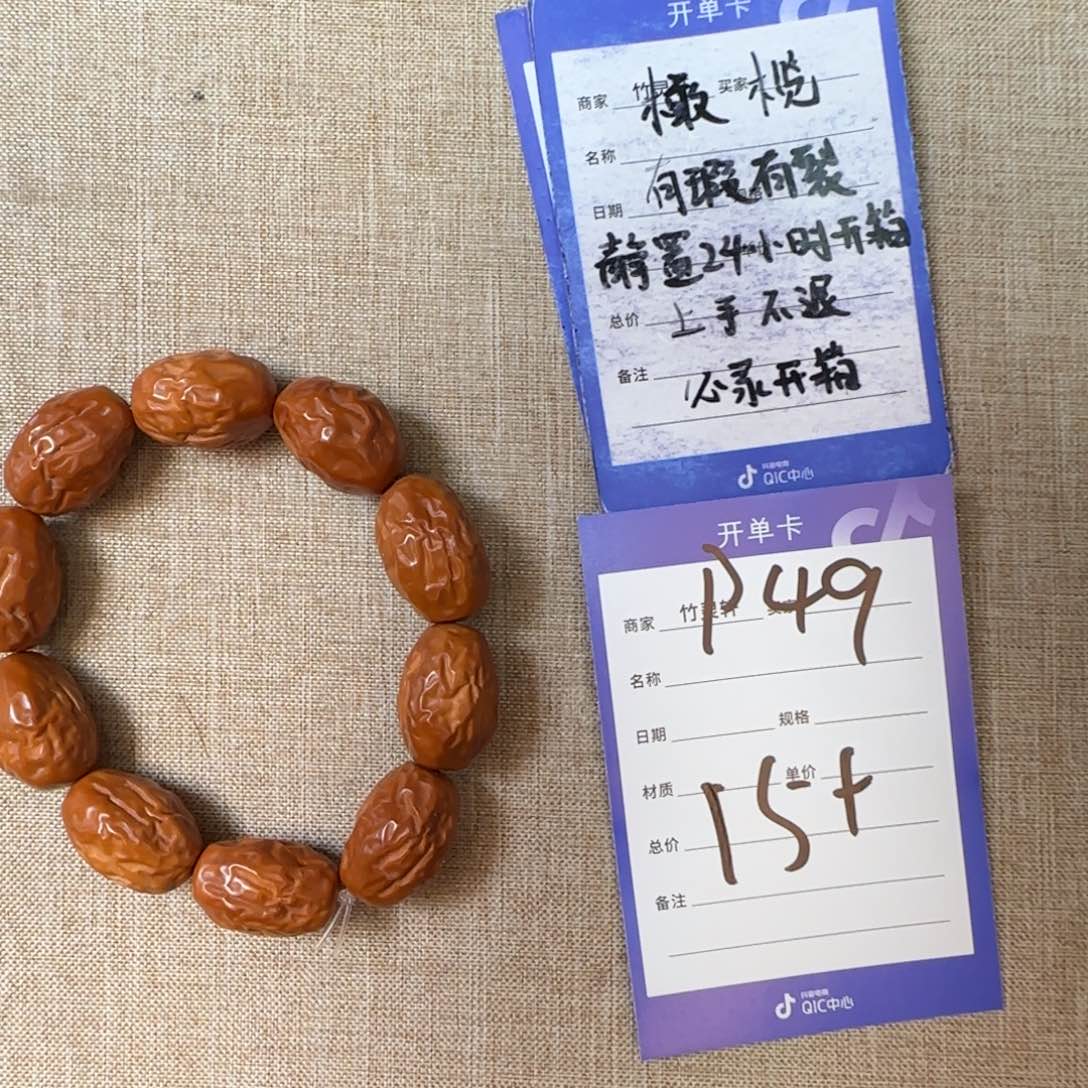 开单卡
商家 竹灵 买家
橄榄
名称
有瑕有裂
日期
静置24小时开箱
总价
上手不退
备注
必录开箱
抖音电商
QIC中心
开单卡
P49
商家 竹灵轩 买家
名称
日期 规格
材质 单价
15+
总价
备注
抖音电商
QIC中心